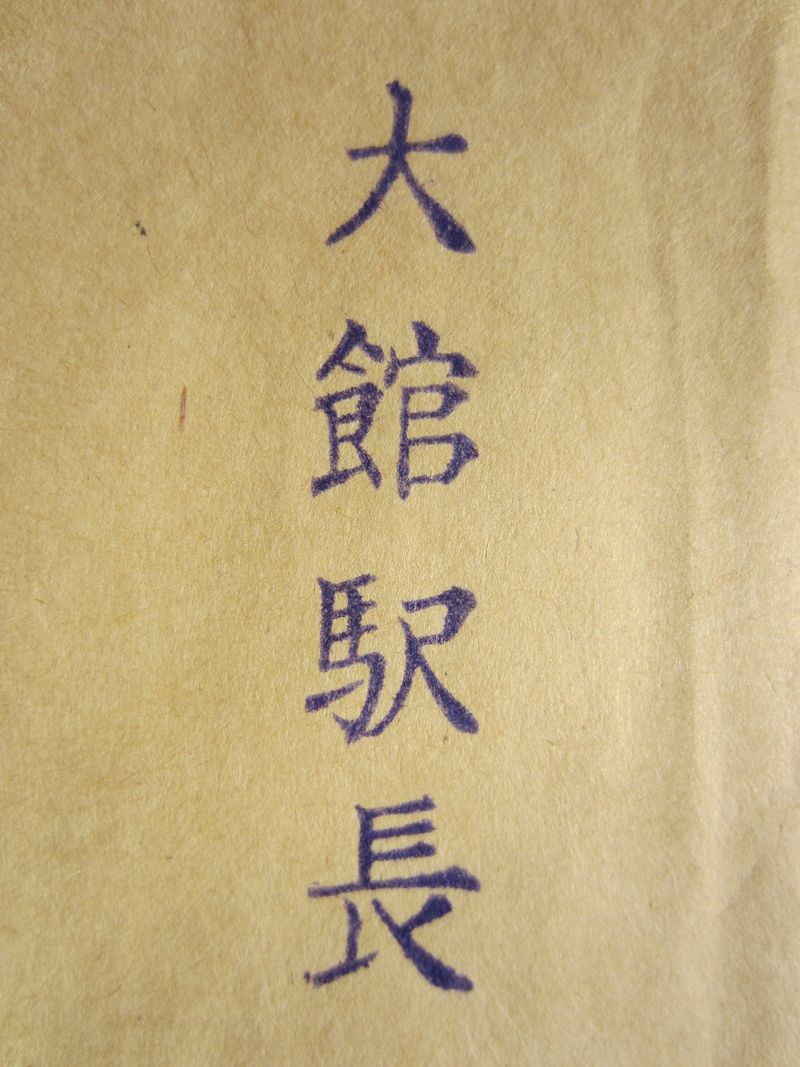 大館駅長